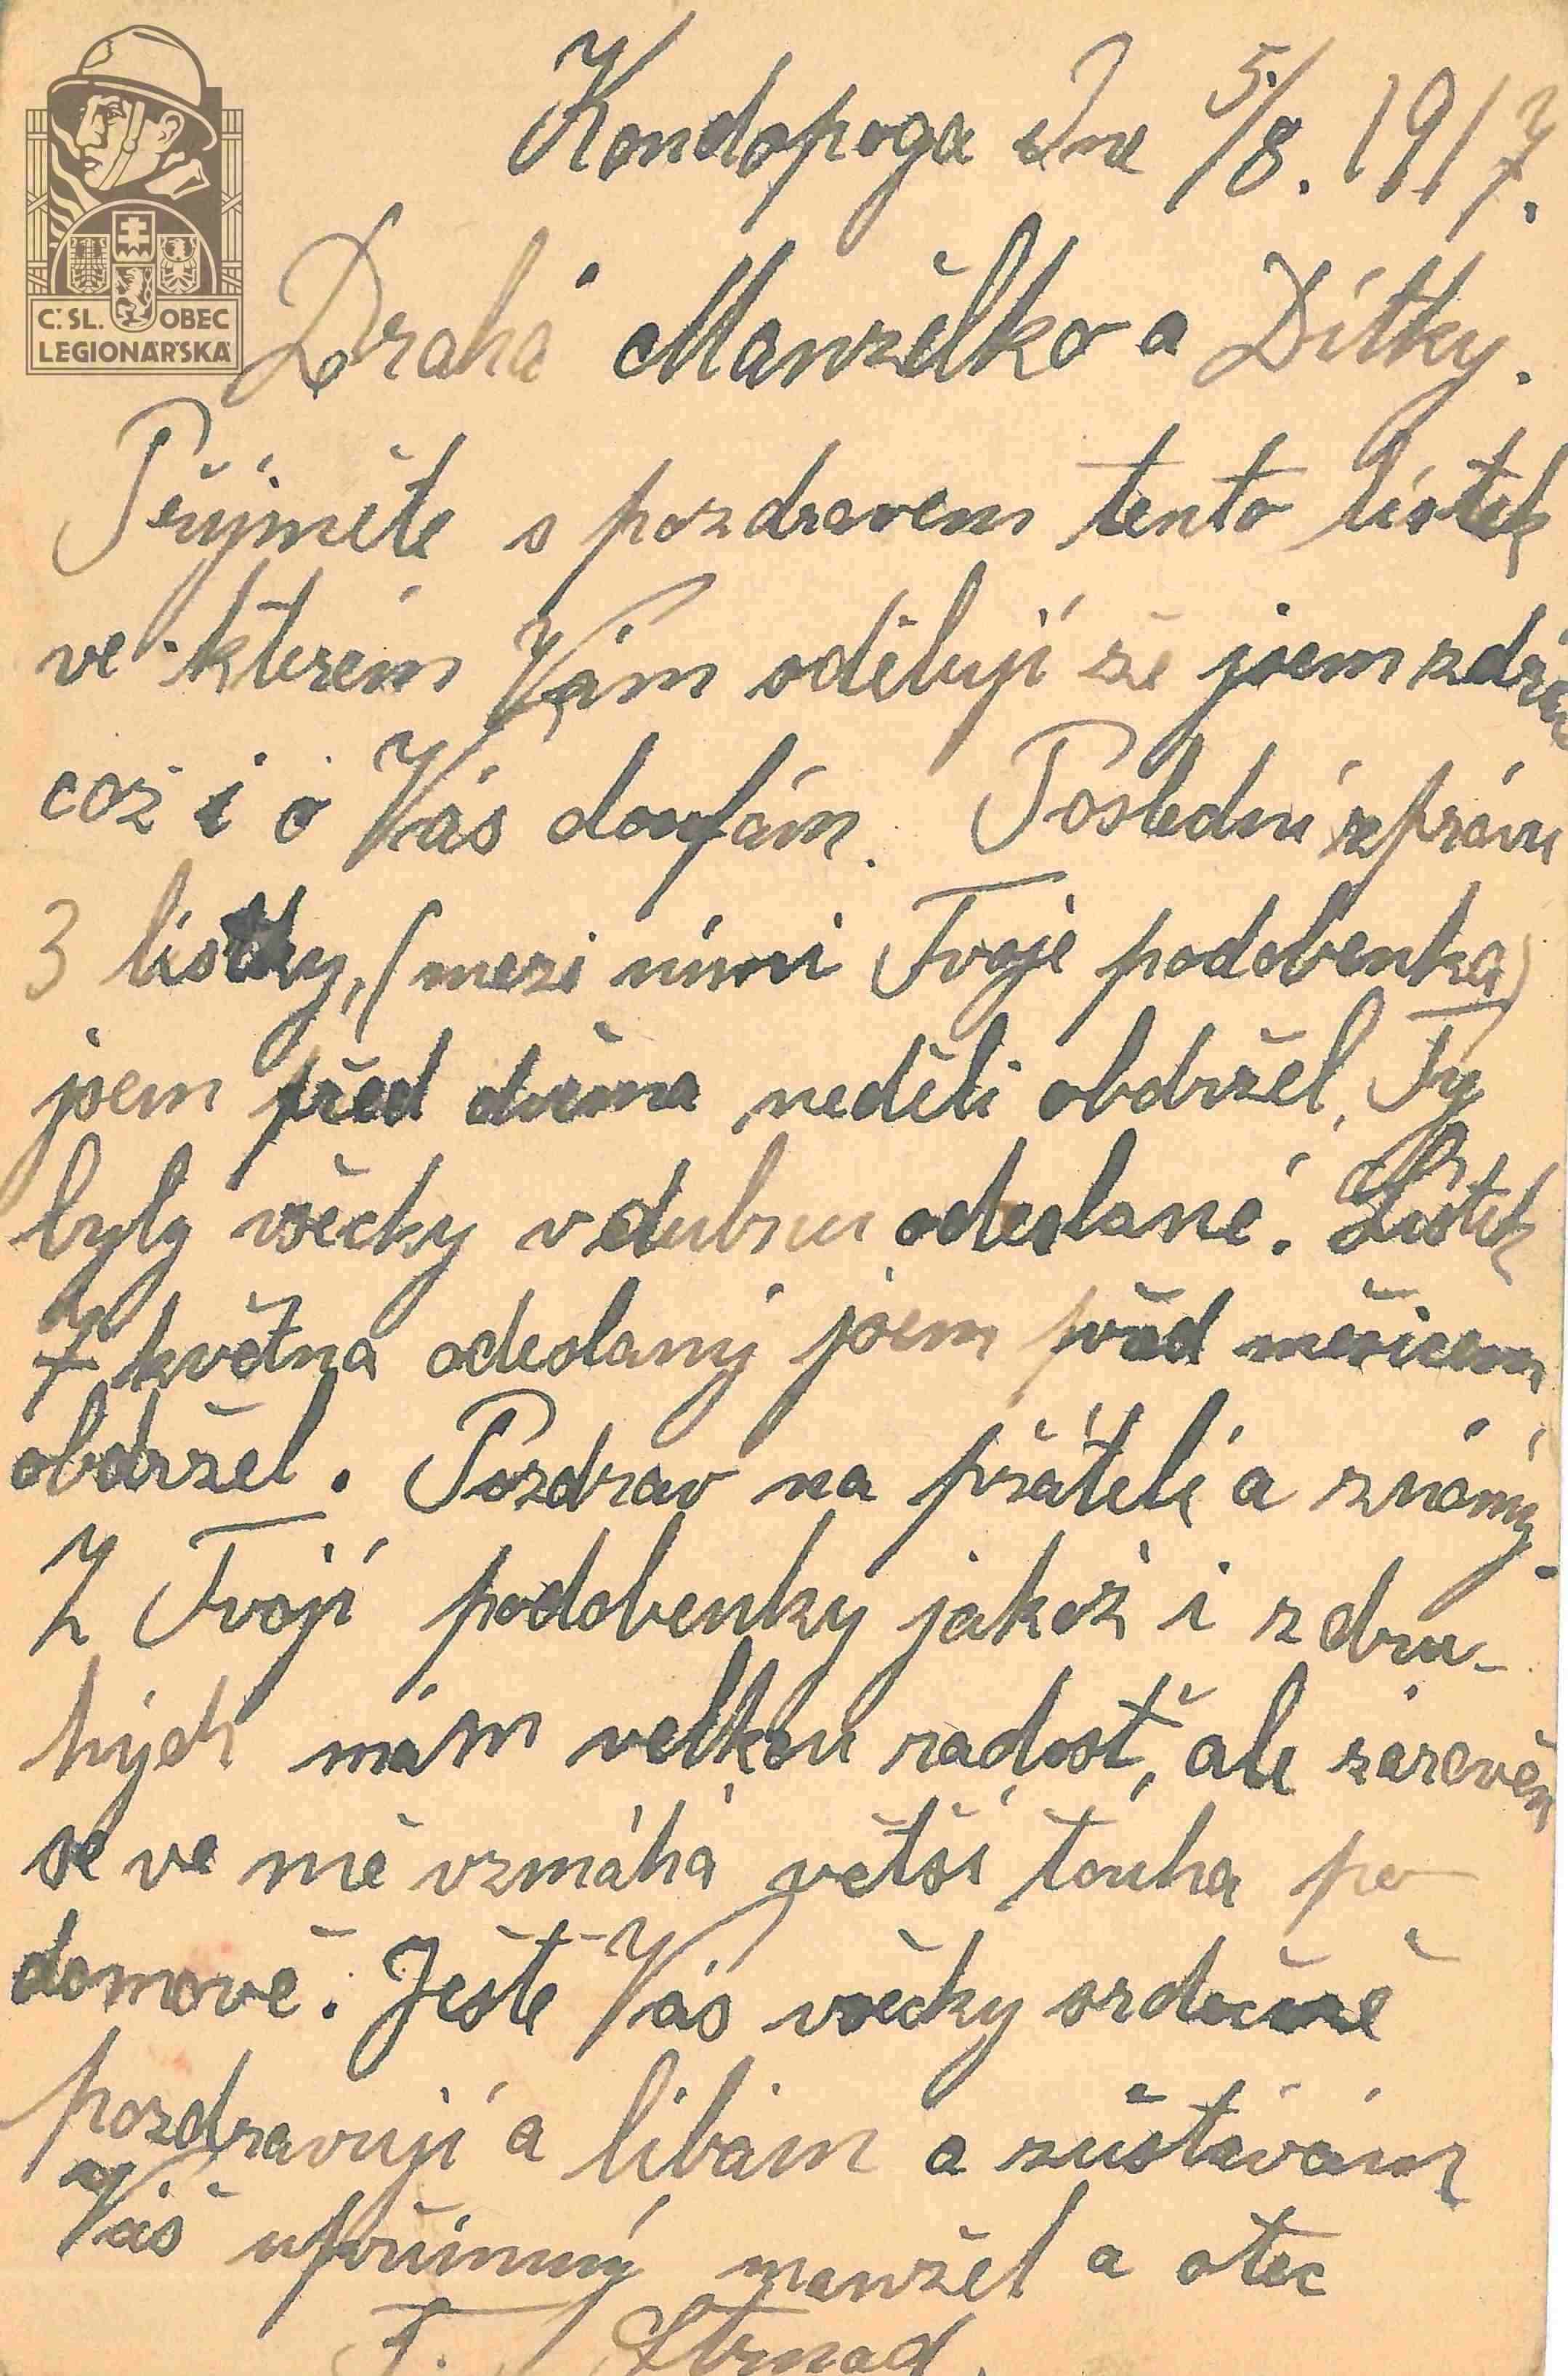 Kondopoga dne 5/8. 1917.
Č.SL. OBEC
LEGIONÁŘSKÁ
Drahá Manželko a Dítky.
Přijměte s pozdravem tento lístek
ve kterém Vám sděluji že jsem zdráv
což i o Vás doufám. Poslední zprávu
3 lístky, (mezi nimi Tvoje podobenka)
jsem před dvěma neděli obdržel. Ty
byly všecky v dubnu odeslané. Lístek
7 května odeslaný jsem před měsícem
obdržel. Pozdrav na přátelé a známý.
Z Tvojí podobenky jakož i z dru-
hých mám velkou radosť, ale zároveň
se ve mě vzmáhá větší touha po
domově. Ještě Vás všecky srdečně
pozdravuji a líbám a zůstávám
Váš upřímný manžel a otec
F. Strnad.